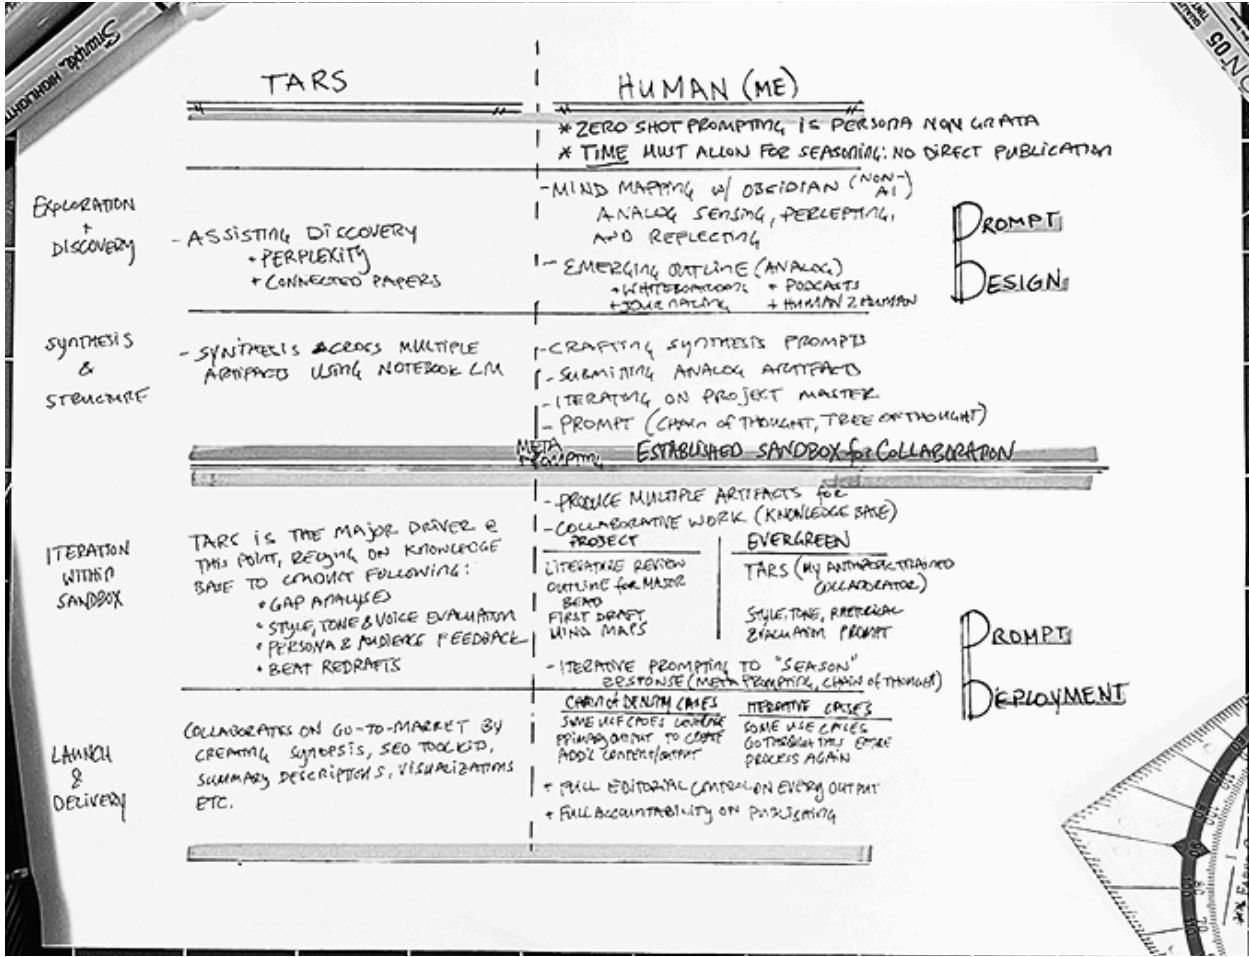 Sharpie. HIGHLIGHTER
N'05
TARS
HUMAN (ME)
* ZERO SHOT PROMPTING IS PERSONA NON GRATA
* TIME MUST ALLOW FOR SEASONING: NO DIRECT PUBLICATION
EXPLORATION
+
DISCOVERY
- ASSISTING DISCOVERY
+ PERPLEXITY
+ CONNECTED PAPERS
- MIND MAPPING w/ OBSIDIAN (NON-
AI)
ANALOG SENSING, PERCEPTING,
AND REFLECTING
- EMERGING OUTLINE (ANALOG)
+ WHITEBOARDING + PODCASTS
+ JOURNALING + HUMAN 2 HUMAN
PROMPT
DESIGN
SYNTHESIS
&
STRUCTURE
- SYNTHESIS ACROSS MULTIPLE
ARTIFACTS USING NOTEBOOK LM
- CRAFTING SYNTHESIS PROMPTS
- SUBMITTING ANALOG ARTIFACTS
- ITERATING ON PROJECT MASTER
- PROMPT (CHAIN of THOUGHT, TREE OF THOUGHT)
META
PROMPTING
ESTABLISHED SANDBOX for COLLABORATION
ITERATION
WITHIN
SANDBOX
TARS IS THE MAJOR DRIVER @
THIS POINT, RELYING ON KNOWLEDGE
BASE TO CONDUCT FOLLOWING:
• GAP ANALYSES
• STYLE, TONE & VOICE EVALUATION
• PERSONA & AUDIENCE FEEDBACK
• BEAT REDRAFTS
- PRODUCE MULTIPLE ARTIFACTS for
- COLLABORATIVE WORK (KNOWLEDGE BASE)
PROJECT
LITERATURE REVIEW
OUTLINE for MAJOR
BEAD
FIRST DRAFT
MIND MAPS
EVERGREEN
TARS (MY ANTHROPIC TRAINED
COLLABORATOR)
STYLE, TONE, RHETORICAL
EVALUATION PROMPT
- ITERATIVE PROMPTING TO "SEASON"
RESPONSE (META PROMPTING, CHAIN of THOUGHT)
PROMPT
DEPLOYMENT
LAUNCH
&
DELIVERY
COLLABORATES ON GO-TO-MARKET BY
CREATING SYNOPSIS, SEO TOOLKIT,
SUMMARY DESCRIPTIONS, VISUALIZATIONS
ETC.
CHAIN of DENSITY CASES
SOME USE CASES LEVERAGE
PRIMARY OUTPUT TO CREATE
ADD'L CONTENT/OUTPUT
ITERATIVE CASES
SOME USE CASES
GO THROUGH THIS ENTIRE
PROCESS AGAIN
+ FULL EDITORIAL CONTROL ON EVERY OUTPUT
+ FULL ACCOUNTABILITY ON PUBLISHING